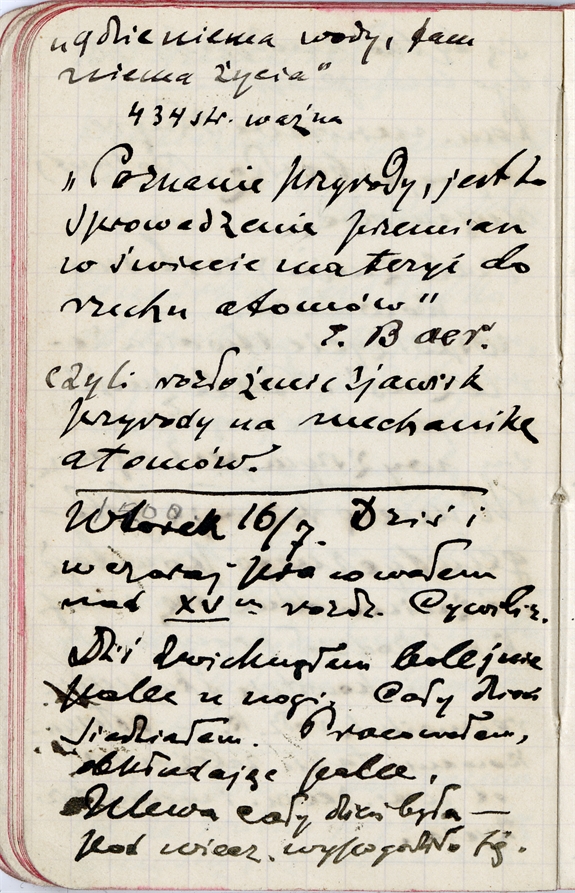 „gdzie niema wody, tam
niema życia"
434 str. ważna
„Poznanie przyrody, jest to
sprowadzenie przemian
w świecie materyi do
ruchu atomów"
czyli rozłożenie zjawisk
przyrody na mechanikę
atomów.
Wtorek 16/7. Dziś i
wczoraj pracowałem
nad XV m rozdz. Cywiliz.
Dziś zwichnąłem kolejnie
palec u nogi. Cały dzień
siedziałem. Pracowałem,
okładając palec.
Ulewa cały dzień była —
pod wiecz. wypogodziło się.